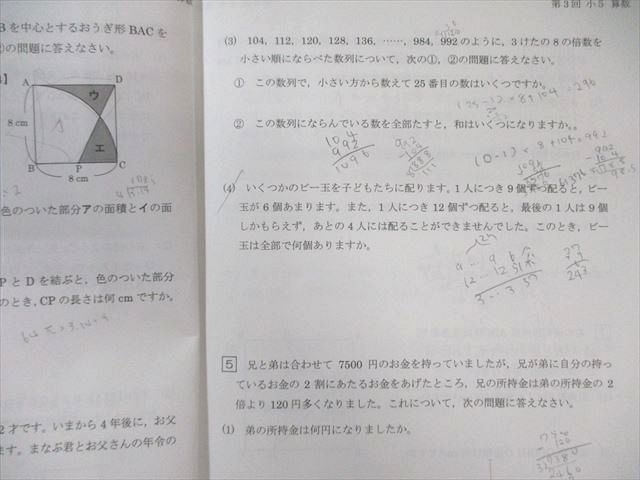 Bを中心とするおうぎ形BACを
の問題に答えなさい。
A
D
ウ
8cm
エ
B
P
C
8cm
色のついた部分アの面積とイの面
PとDを結ぶと，色のついた部分
のとき，CPの長さは何cmですか。
2才です。いまから4年後に，お父
ます。まなぶ君とお父さんの年令の
第3回 小5 算数
(3) 104，112，120，128，136，……，984，992のように，3けたの8の倍数を
小さい順にならべた数列について，次の①，②の問題に答えなさい。
① この数列で，小さい方から数えて25番目の数はいくつですか。
(25-1)×8+104=296
② この数列にならんでいる数を全部たすと，和はいくつになりますか。
104
992
1096
(4) いくつかのビー玉を子どもたちに配ります。1人につき9個ずつ配ると，ビー
玉が6個あまります。また，1人につき12個ずつ配ると，最後の1人は9個
しかもらえず，あとの4人には配ることができませんでした。このとき，ビー
玉は全部で何個ありますか。
5 兄と弟は合わせて7500円のお金を持っていましたが，兄が弟に自分の持っ
ているお金の2割にあたるお金をあげたところ，兄の所持金は弟の所持金の2
倍より120円多くなりました。これについて，次の問題に答えなさい。
(1) 弟の所持金は何円になりましたか。